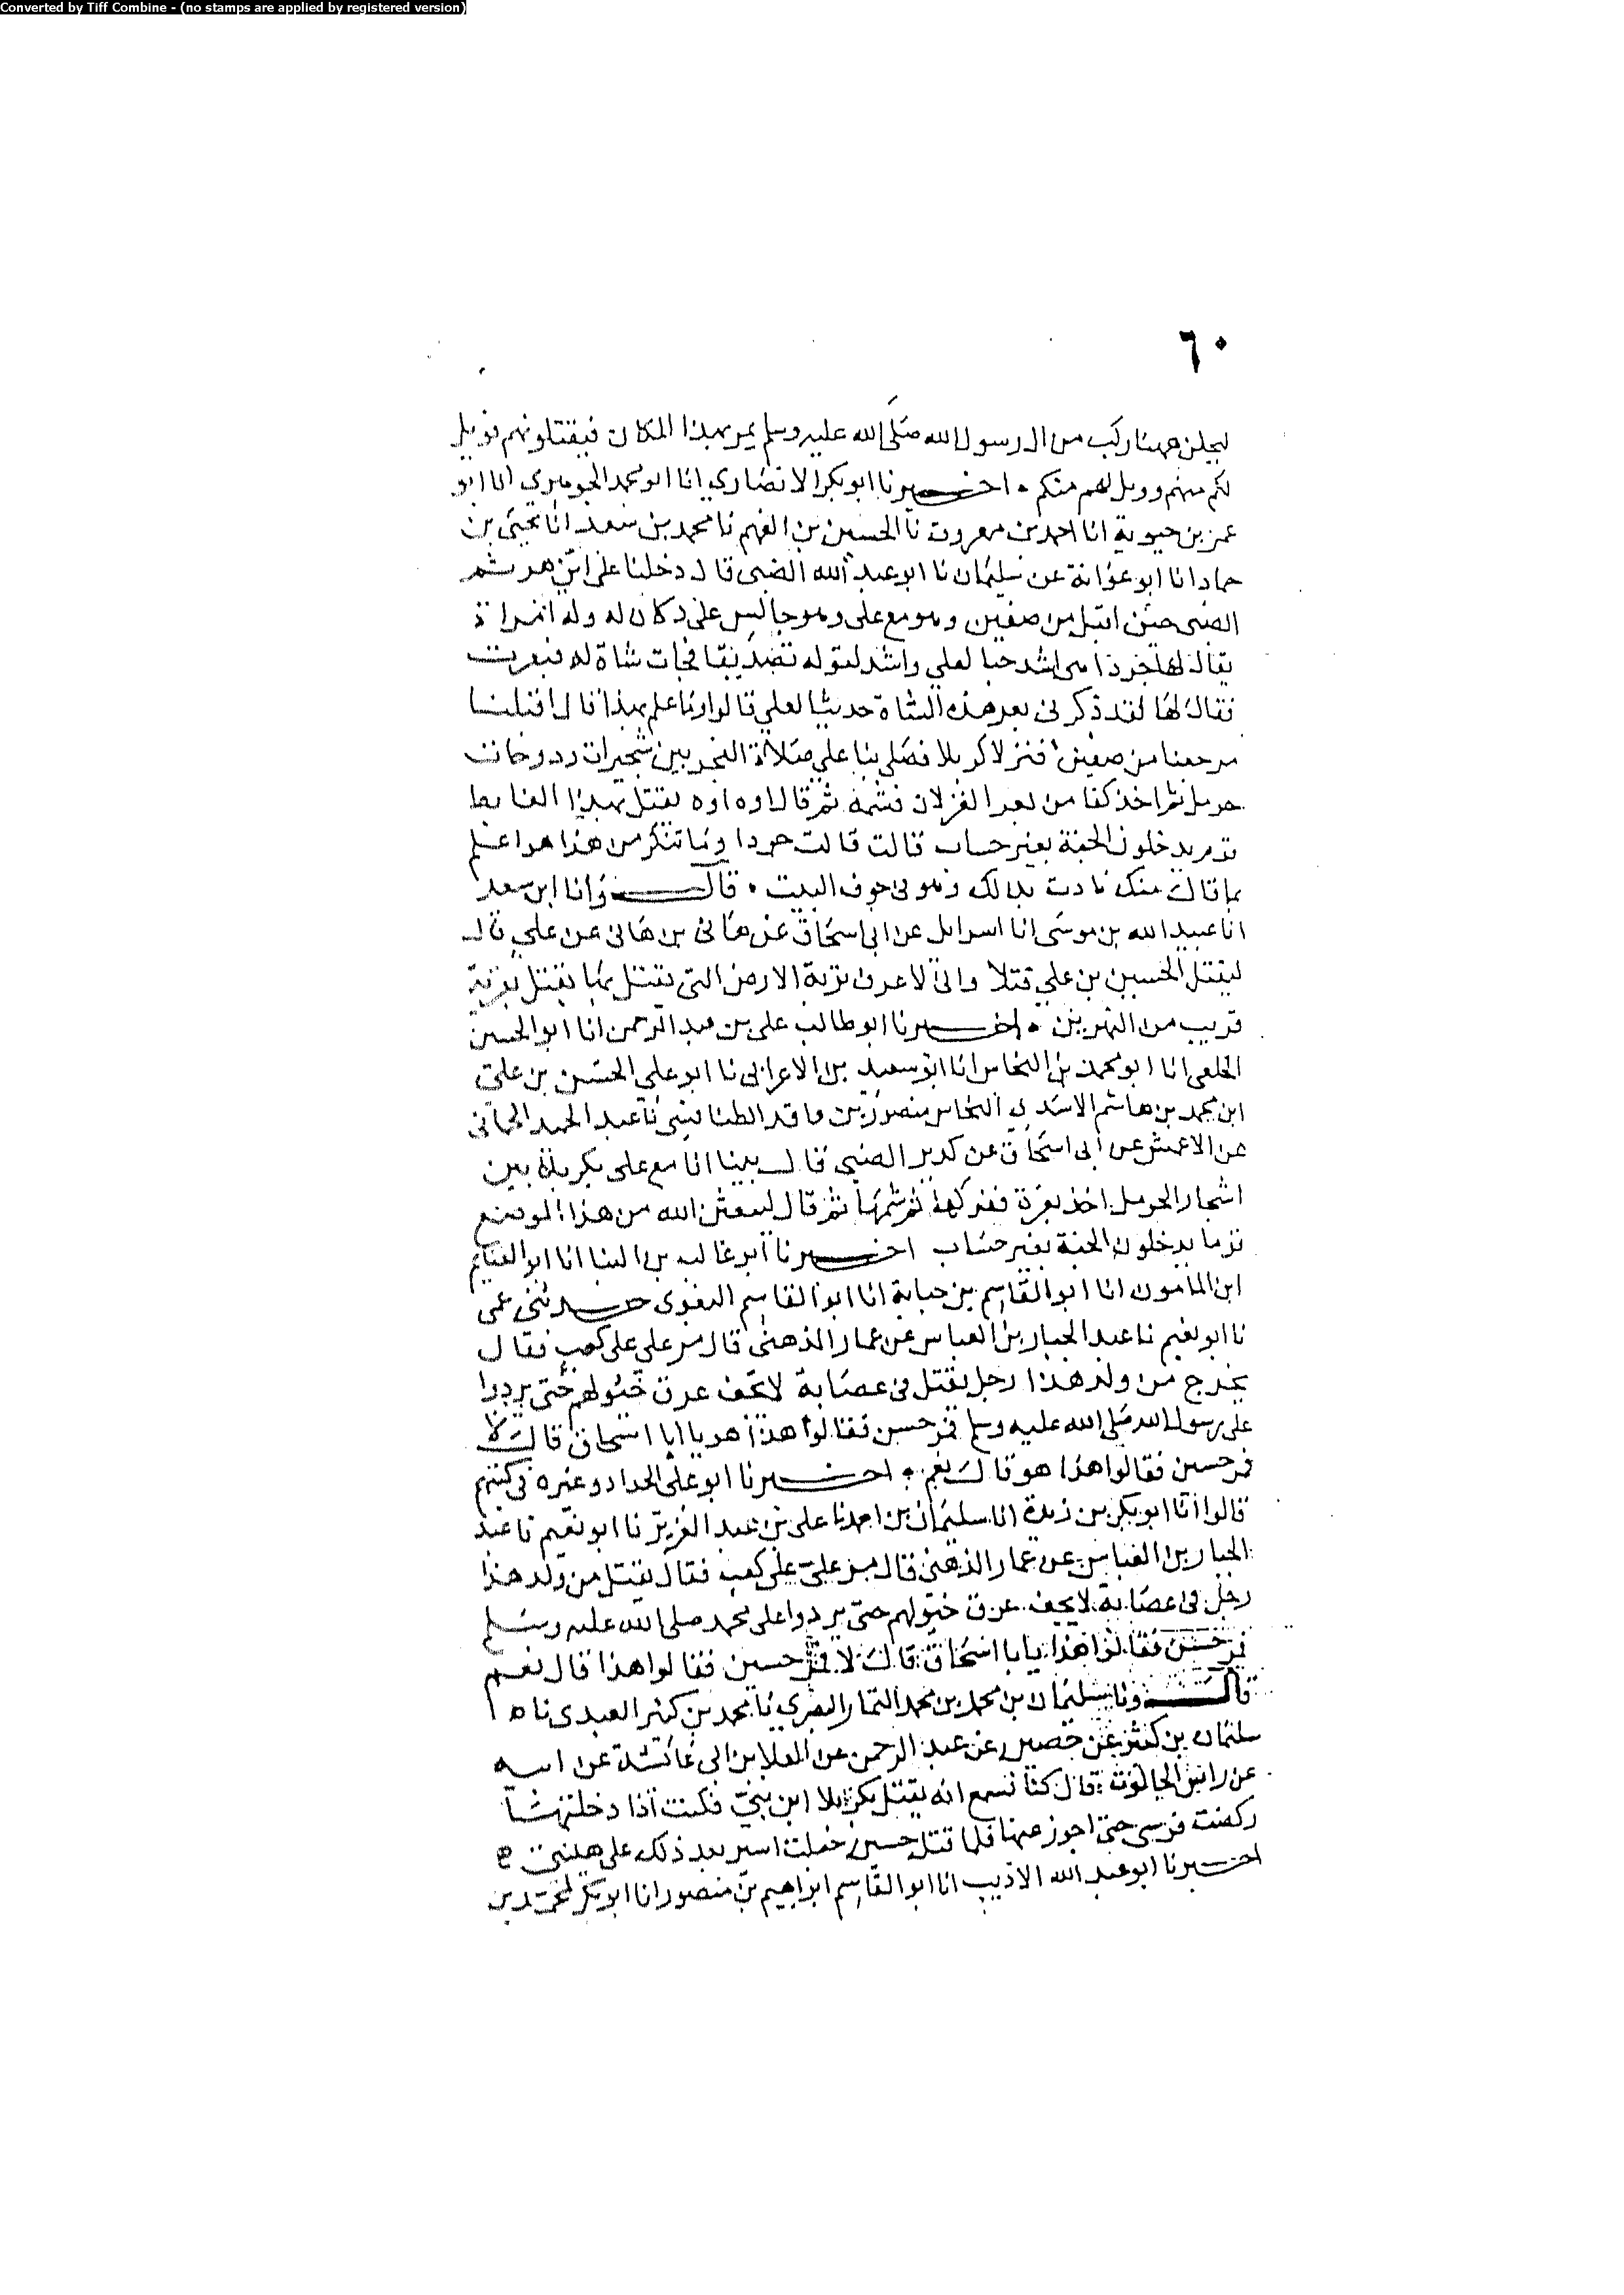 Converted by Tiff Combine - (no stamps are applied by registered version)
٦٠
ليحلن ههنا ركب من ال رسول الله صلى الله عليه وسلم يمر بهذا المكان فيقتلونهم فويل
لكم منهم وويل لهم منكم • اخبرنا ابو بكر الانصاري انا ابو محمد الجوهري انا ابو
عمر بن حيوية انا احمد بن معروف نا الحسين بن الفهم نا محمد بن سعد انا يحيى بن
حماد انا ابو عوانة عن سليمان نا ابو عبد الله الضبى قال دخلنا على ابن هرثم
الضبى حين اقبل من صفين وهو مع على وهو جالس على دكان له وله امراة
يقال لها جردا هى اشد حبا لعلي واشد لقوله تصديقا فجات شاة له فبعرت
فقال لها لقد ذكرنى بعر هذه الشاة حديثا لعلي قالوا وما علم بهذا قال اقبلنا
مرجعنا من صفين فنزلا كربلا فصلى بنا علي صلاة الفجر بين شجيرات ودوحات
حرمل ثم اخذ كفا من بعر الغزلان فشمه ثم قال اوه اوه يقتل بهذا الغايط
قوم يدخلون الجنة بغير حساب قالت قالت جردا وما تنكر من هذا هو اعلم
بما قال منك نادت بذالك وهو فى جوف البيت • قال وانا ابن سعد
انا عبيد الله بن موسى انا اسرايل عن ابى اسحاق عن هانى بن هانى عن علي قال
ليقتل الحسين بن علي قتلا وانى لاعرف تربة الارض التى يقتل بها يقتل بقرية
قريب من النهرين • اخبرنا ابو طالب على بن عبد الرحمن انا ابو الحسين
الخلعى انا ابو محمد بن النحاس انا ابو سعيد بن الاعرابى نا ابو علي الحسن بن علي
ابن محمد بن هاشم الاسدي النحاس منصور بن واقد الطنافسى نا عبد الحميد الحمانى
عن الاعمش عن ابى اسحاق عن كدير الضبى قال بينا انا مع على بكربلا بين
اشجار الحرمل اخذ بعرة ففركها ثم شمها ثم قال ليبعثن الله من هذا الموضع
قوما يدخلون الجنة بغير حساب اخبرنا ابو غالب بن البنا انا ابو الغنايم
ابن المامون انا ابو القاسم بن حبابة انا ابو القاسم البغوى حدثنى عمى
نا ابو نعيم نا عبد الجبار بن العباس عن عمار الدهنى قال مر علي على كعب فقال
يخرج من ولد هذا رجل يقتل فى عصابة لا يجف عرق خيولهم حتى يردوا
على رسول الله صلى الله عليه وسلم فمر حسن فقالوا هذا هو يا ابا اسحاق قال لا
فمر حسين فقالوا هذا هو قال نعم • اخبرنا ابو على الحداد وغيره فى كتبهم
قالوا انا ابو بكر بن ريذة انا سليمان بن احمد نا على بن عبد العزيز نا ابو نعيم نا عبد
الجبار بن العباس عن عمار الدهنى قال مر علي على كعب فقال يقتل من ولد هذا
رجل فى عصابة لا يجف عرق خيولهم حتى يردوا على محمد صلى الله عليه وسلم
فمر حسن فقالوا هذا يابا اسحاق قال لا فمر حسين فقالوا هذا قال نعم
قال ونا سليمان بن محمد بن محمد التمار البصري نا محمد بن كثير العبدى نا
سليمان بن كثير عن حصين عن عبد الرحمن عن العلا بن ابى عائشة عن ابيه
عن راس الجالوت قال كنا نسمع انه يقتل بكربلا ابن نبي فكنت اذا دخلتها
ركضت فرسى حتى اجوز عنها فلما قتل حسين جعلت اسير بعد ذلك على هينتى
اخبرنا ابو عبد الله الاديب انا ابو القاسم ابراهيم بن منصور انا ابو بكر محمد بن